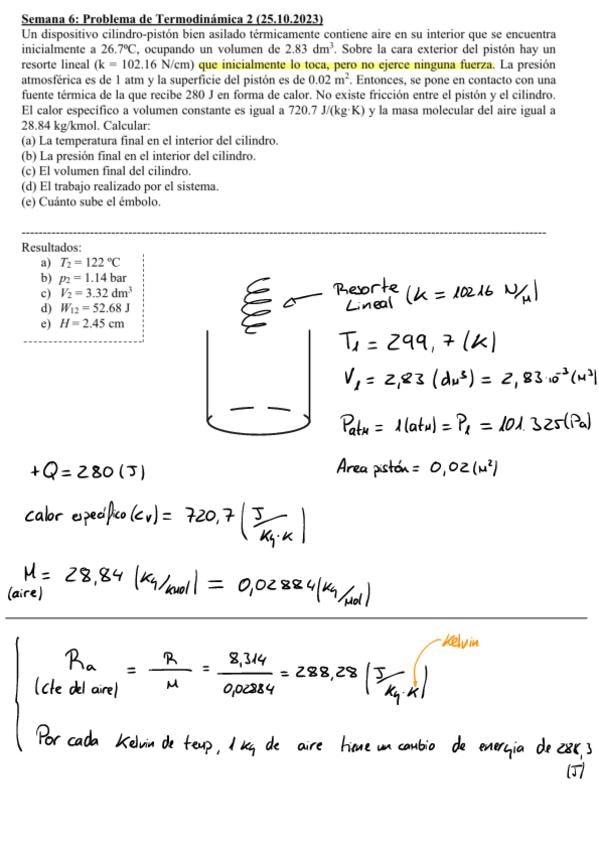 Semana 6: Problema de Termodinámica 2 (25.10.2023)
Un dispositivo cilindro-pistón bien asilado térmicamente contiene aire en su interior que se encuentra
inicialmente a 26.7ºC, ocupando un volumen de 2.83 dm³. Sobre la cara exterior del pistón hay un
resorte lineal (k = 102.16 N/cm) que inicialmente lo toca, pero no ejerce ninguna fuerza. La presión
atmosférica es de 1 atm y la superficie del pistón es de 0.02 m². Entonces, se pone en contacto con una
fuente térmica de la que recibe 280 J en forma de calor. No existe fricción entre el pistón y el cilindro.
El calor específico a volumen constante es igual a 720.7 J/(kg·K) y la masa molecular del aire igual a
28.84 kg/kmol. Calcular:
(a) La temperatura final en el interior del cilindro.
(b) La presión final en el interior del cilindro.
(c) El volumen final del cilindro.
(d) El trabajo realizado por el sistema.
(e) Cuánto sube el émbolo.
Resultados:
a) T₂ = 122 ºC
b) p₂ = 1.14 bar
c) V₂ = 3.32 dm³
d) W₁₂ = 52.68 J
e) H = 2.45 cm
Resorte
Lineal (k = 10216 N/M)
T₁ = 299,7 (K)
V₁ = 2,83 (dm³) = 2,83·10⁻³ (M³)
Patm = 1(atm) = P₁ = 101.325(Pa)
+Q = 280 (J)
Area pistón = 0,02 (M²)
calor específico (cv) = 720,7 (J/Kg·K)
M = 28,84 (Kg/kmol) = 0,02884 (Kg/Mol)
(aire)
Kelvin
Ra = R/M = 8,314/0,02884 = 288,28 (J/Kg·K)
(cte del aire)
Por cada Kelvin de temp, 1 Kg de aire tiene un cambio de energia de 288,3
(J)